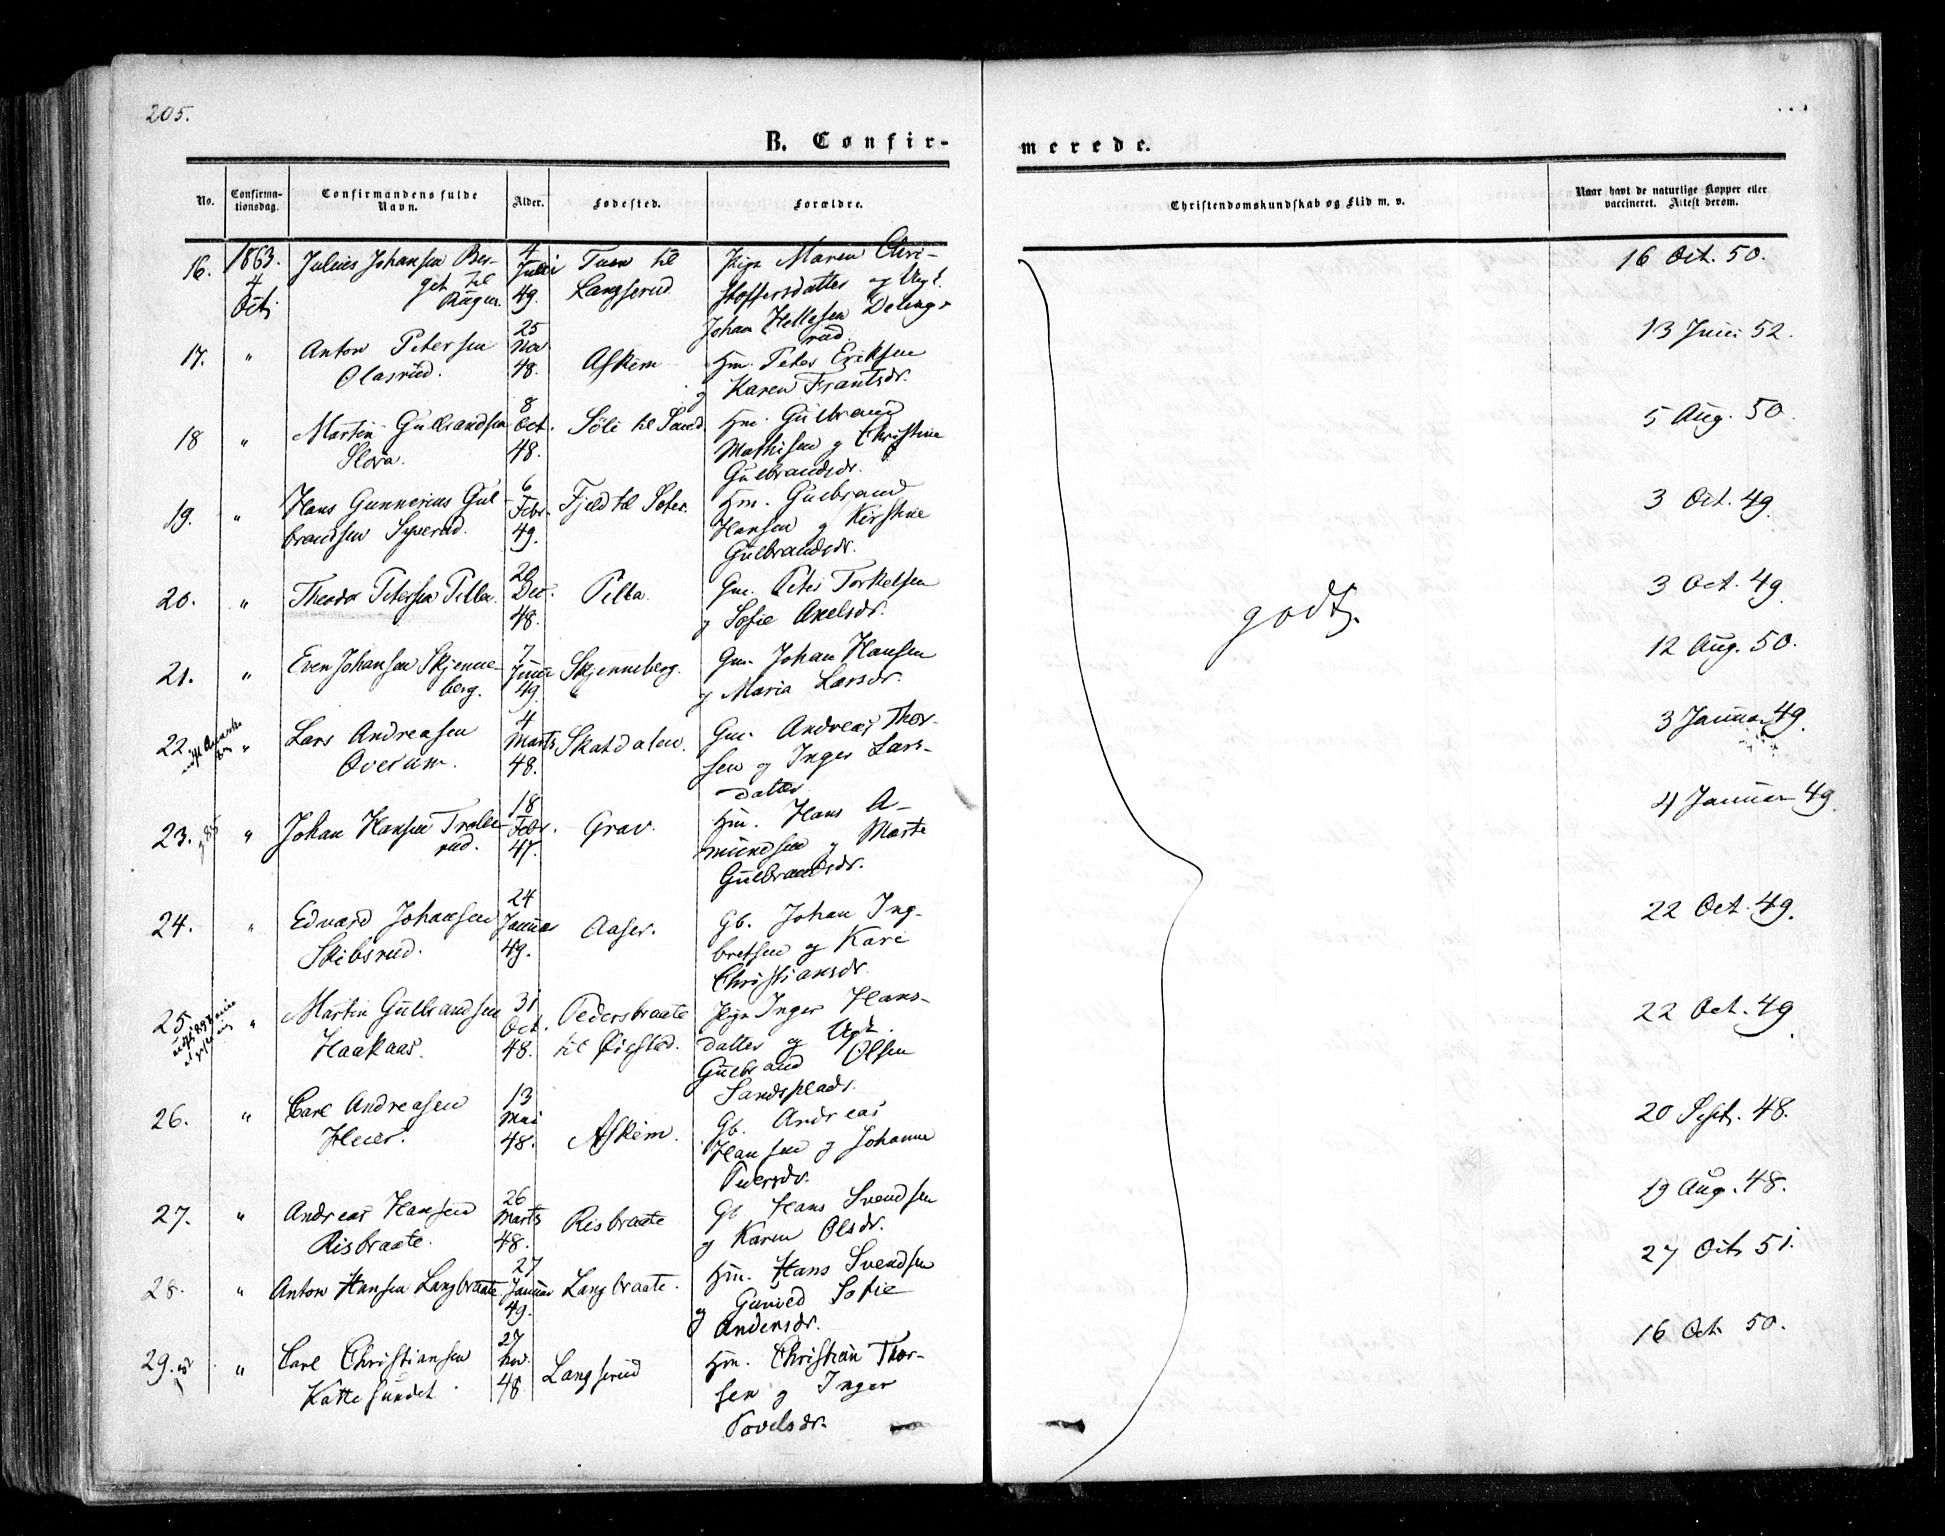 205.
B. Confir-
merede.
No.
Confirma-
tionsdag.
Confirmandens fulde
Navn.
Alder.
Fødested.
Forældre.
Christendomskundskab og Flid m. v.
Naar havt de naturlige Kopper eller
vaccineret. Attest derom.
16. 1863. Julius Johansen Ber- 4 Tuen til Pige Maren Chri- 16 Oct. 50.
4 get til Juli Langserud stoffersdatter og Ugk.
Oct. 49. Johan Hellesen Deling-
rud.
17. " Anton Petersen 25 Nov 48. Askim Hm. Peter Eriksen 13 Juni 52.
Olasrud. og Karen Frantsdr.
18 " Martin Gulbrandsen 8 Oct. 48. Søli til Sand Hm. Gulbrand 5 Aug. 50.
Slora. Mathisen og Christine
Gulbrandsdr.
19. " Hans Gunnerius Gul- 6 Febr. 49. Fjeld til Hm. Gulbrand 3 Oct. 49.
brandsen Syverud. Hansen og Kirstine
Gulbrandsdr.
20. " Theodor Petersen Pilba. 20 Dec. 48. Pilba. Gm. Peter Torkelsen 3 Oct. 49.
og Sofie Axelsdr.
godt.
21. " Even Johansen Skjenne- 7 49. Skjenneberg. Gm. Johan Hansen 12 Aug. 50.
berg. og Maria Larsdr.
22. " Lars Andreasen 4 Marts 48. Skatdalen. Gm. Andreas Thor- 3 Januar 49.
Overum. sen og Inger Lars-
datter
23. " Johan Hansen 18 Febr. Grav. Hm. Hans A- 4 Januar 49.
rud. mundsen og Marte
Gulbrandsdr.
24. " Edvard Johansen 24 Januar 49. Aaser. Gb. Johan Ing- 22 Oct. 49.
Skibsrud. bretsen og Kari
Christiansdr.
25. " Martin Gulbrandsen 31 Oct. 48. Pedersbraate Pige Inger Hans- 22 Oct. 49.
Haakaas. til datter og Ugk.
Gulbrand Olsen
Sandsplads.
26. " Carl Andreasen 13 Mai 48. Askim. Gb. Andreas 20 Sept. 48.
Heier. Hansen og Johanne
Pedersdr.
27. " Andreas Hansen 26 Marts 48. Risbraate Gb. Hans Svendsen 19 Aug. 48.
Risbraate. og Karen Olsdr.
28. " Anton Hansen Langbraate 27 Januar 49. Langbraate. Hm. Hans Svendsen 27 Oct 51.
og Sofie
Andersdr.
29. " Carl Christiansen 27 Nov. 48. Langserud Hm. Christian Thor- 16 Oct 50.
Kattesundet. sen og Inger
Povelsdr.